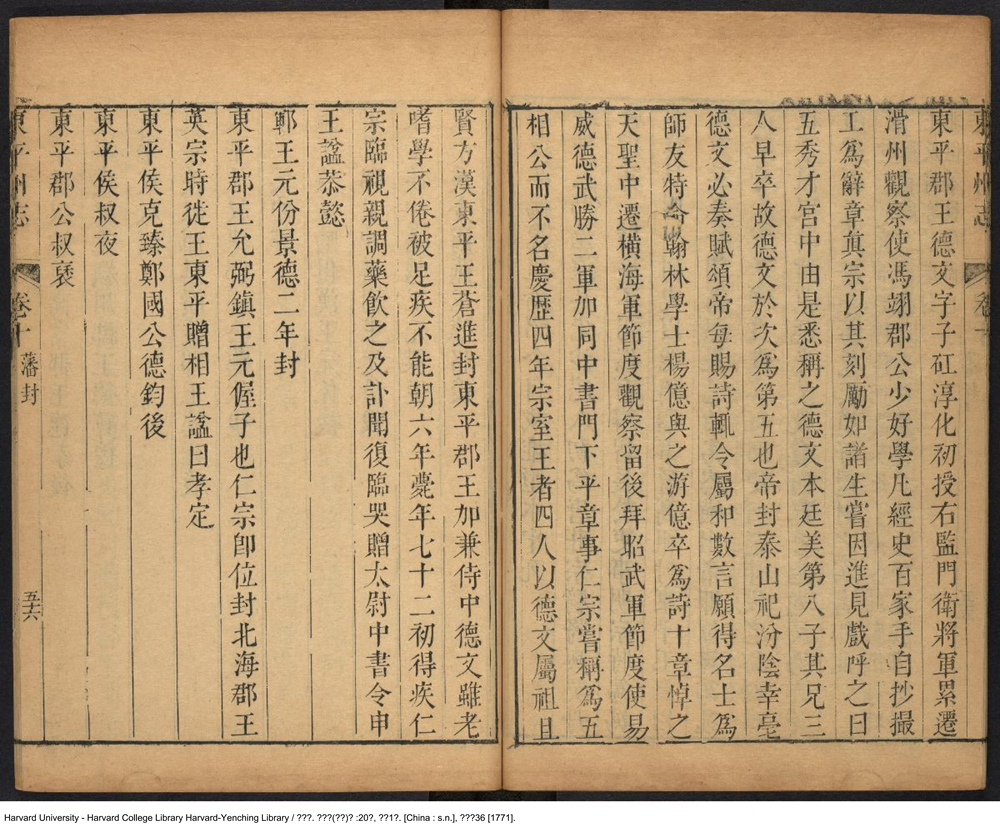 東平州志
卷十
東平郡王德文字子矼淳化初授右監門衛將軍累遷
滑州觀察使馮翊郡公少好學凡經史百家手自抄撮
工爲辭章眞宗以其刻勵如諸生嘗因進見戲呼之曰
五秀才宮中由是悉稱之德文本廷美第八子其兄三
人早卒故德文於次爲第五也帝封泰山祀汾陰幸亳
德文必奏賦頌帝每賜詩輒令屬和數言願得名士爲
師友特命翰林學士楊億與之游億卒爲詩十章悼之
天聖中遷橫海軍節度觀察留後拜昭武軍節度使易
威德武勝二軍加同中書門下平章事仁宗嘗稱爲五
相公而不名慶歷四年宗室王者四人以德文屬祖且
賢方漢東平王蒼進封東平郡王加兼侍中德文雖老
嗜學不倦被足疾不能朝六年薨年七十二初得疾仁
宗臨視親調藥飲之及訃聞復臨哭贈太尉中書令申
王諡恭懿
鄆王元份景德二年封
東平郡王允弼鎮王元偓子也仁宗卽位封北海郡王
英宗時徙王東平贈相王諡曰孝定
東平侯克臻鄭國公德鈞後
東平侯叔夜
東平郡公叔褎
東平州志
卷十
藩封
五六
Harvard University - Harvard College Library Harvard-Yenching Library / ???. ???(??)? :20?, ??1?. [China : s.n.], ???36 [1771].